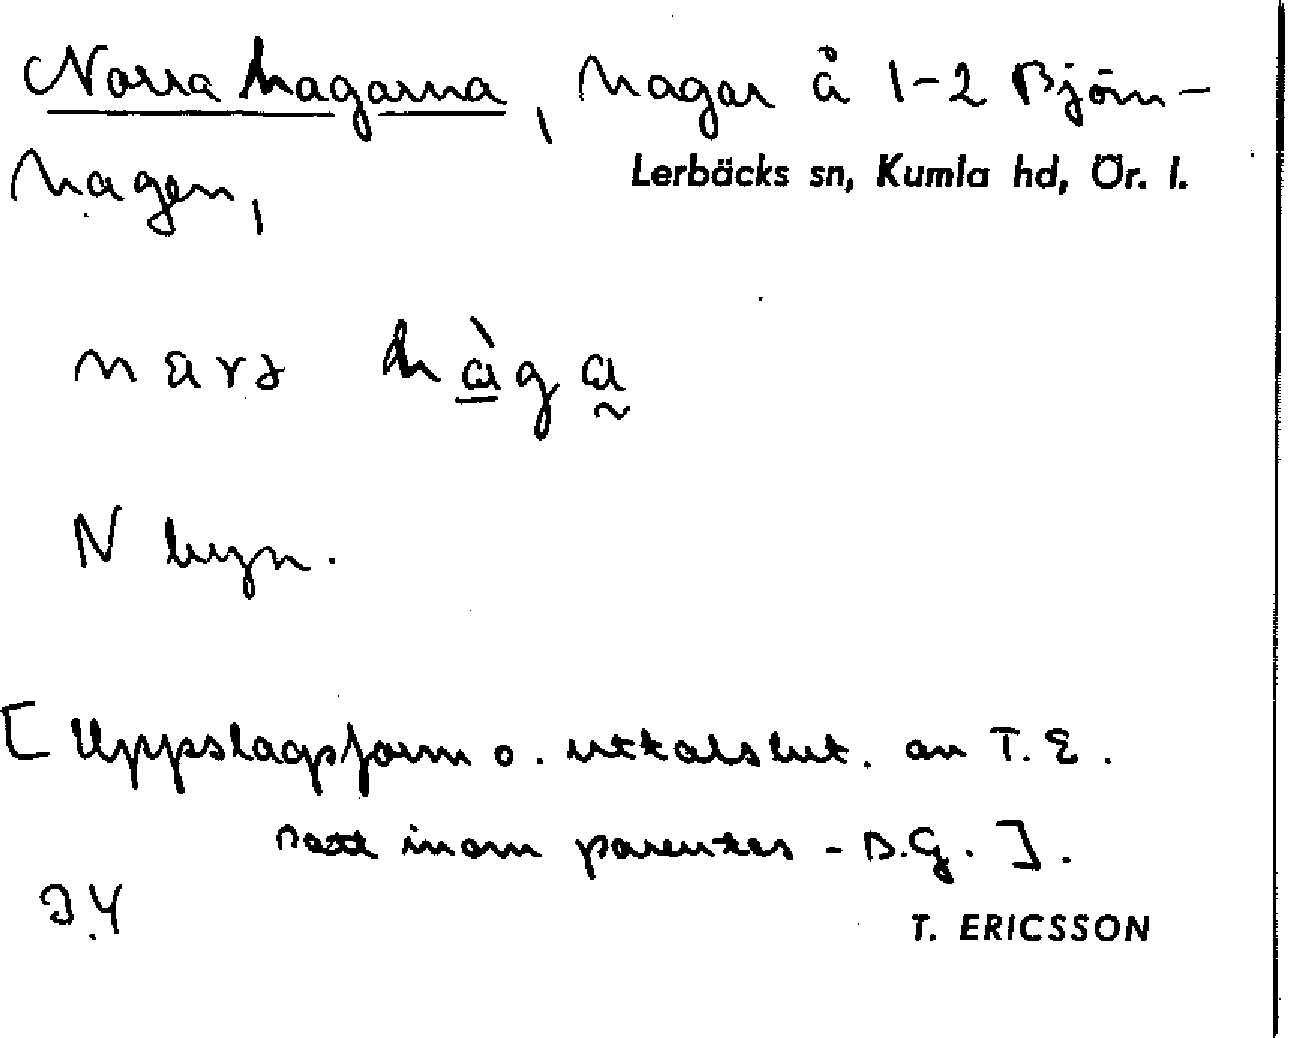 Norra hagarna, hagar å 1-2 Björn-
hagen,
Lerbäcks sn, Kumla hd, Ör. l.
narə hàga
N byn.
[ Uppslagsform o. uttalslut. av T. E.
satt inom parentes - B.G. ].
T. ERICSSON